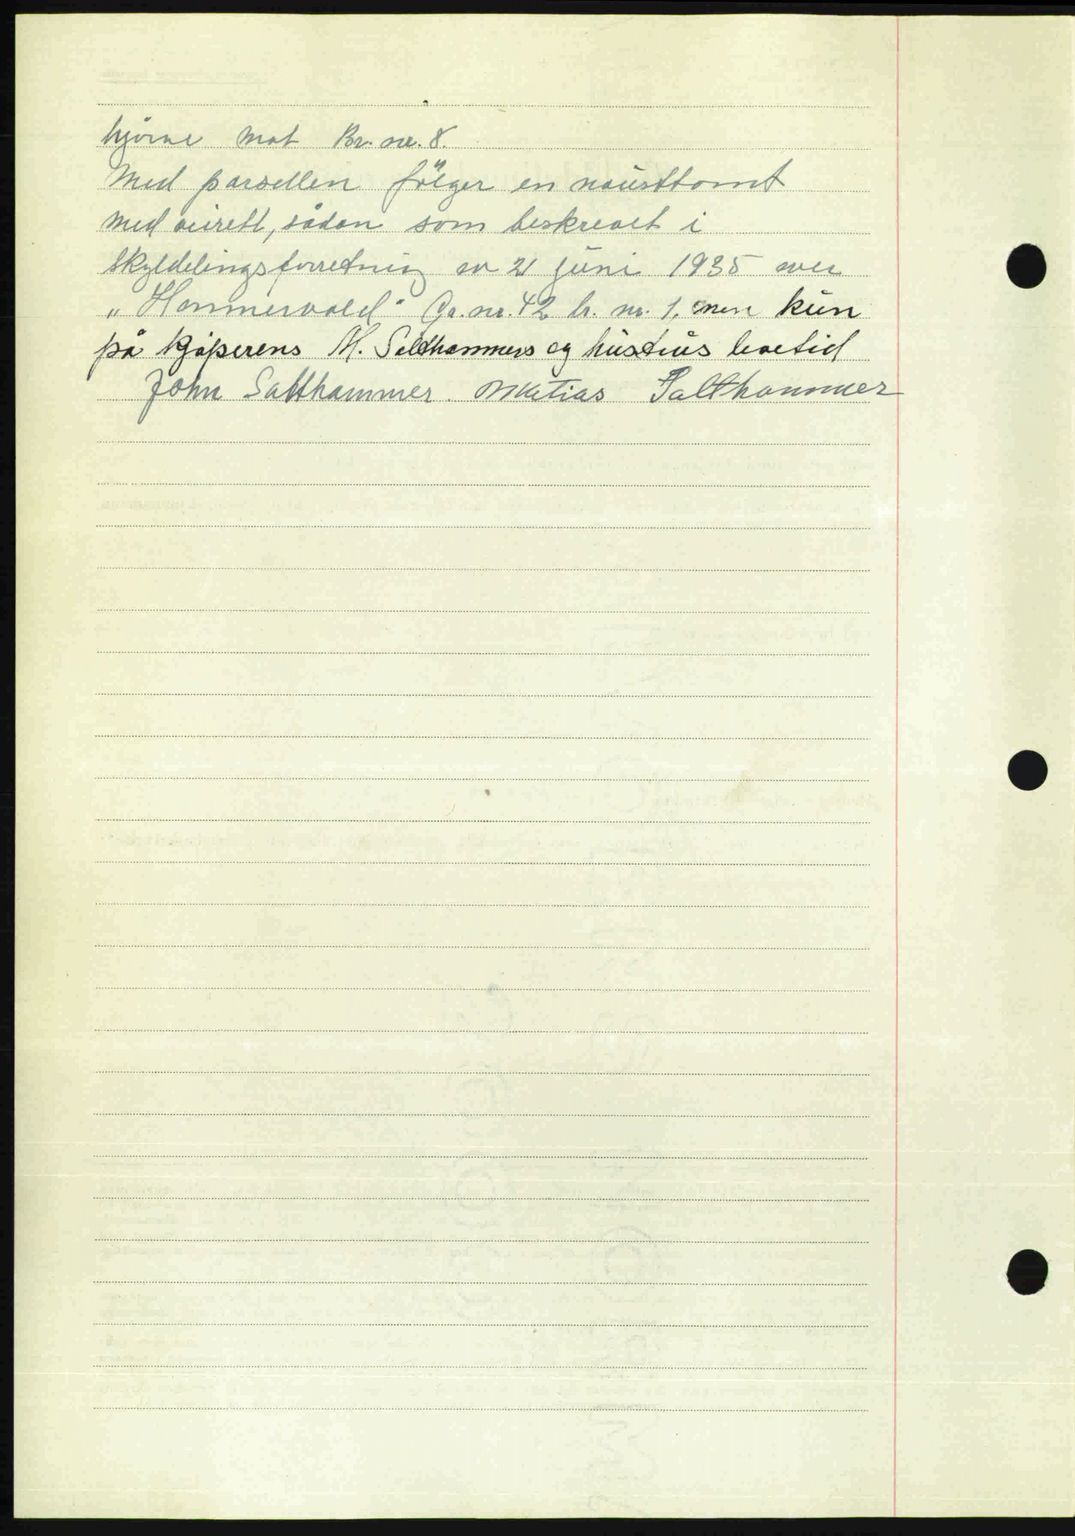 hjørne mot Br. nr. 8.
Med parsellen følger en nausttomt
med veirett, sådan som beskrevet i
skyldelingsforretning av 21 juni 1935 over
„Hammervold" Gr. nr. 42 br. nr. 1. men kun
på kjøperens M. Salthammers og hustrus levetid
John Salthammer. Matias Salthammer